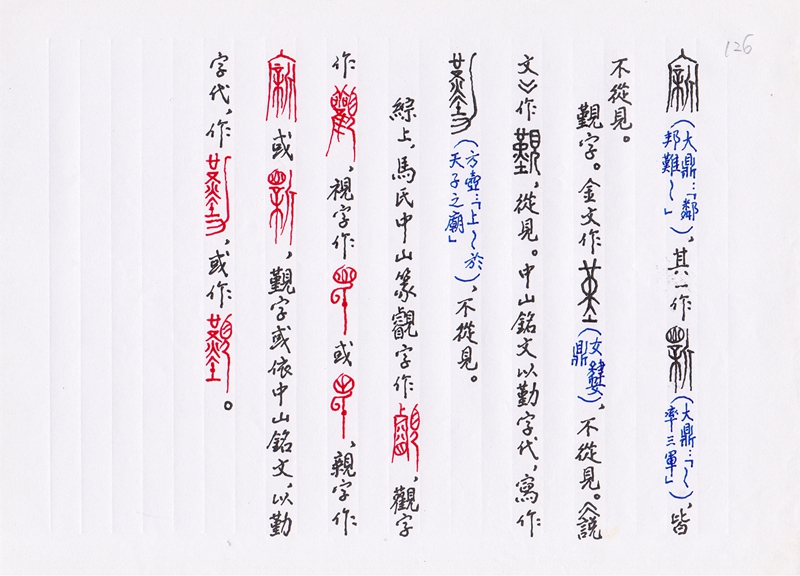 126
（大鼎：「鄰邦難～」），其一作（大鼎：「～率三軍」），皆
不從見。
覲字。金文作（女鼎），不從見。《說
文》作，從見。中山銘文以勤字代，寫作
（方壺「上～於天子之廟」），不從見。
綜上，馬氏中山篆覷字作，觀字
作，視字作或，親字作
或，覲字或依中山銘文，以勤
字代，作，或作。